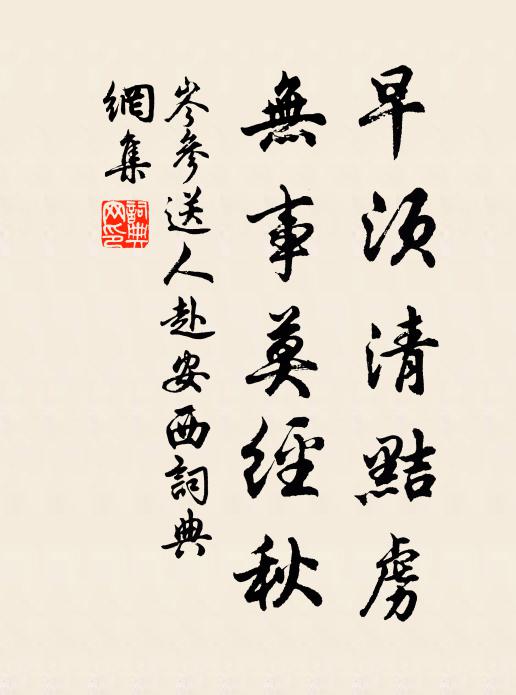 早須清黠虜
無事莫經秋
岑參送人赴安西詞典
網集
詞典
网印